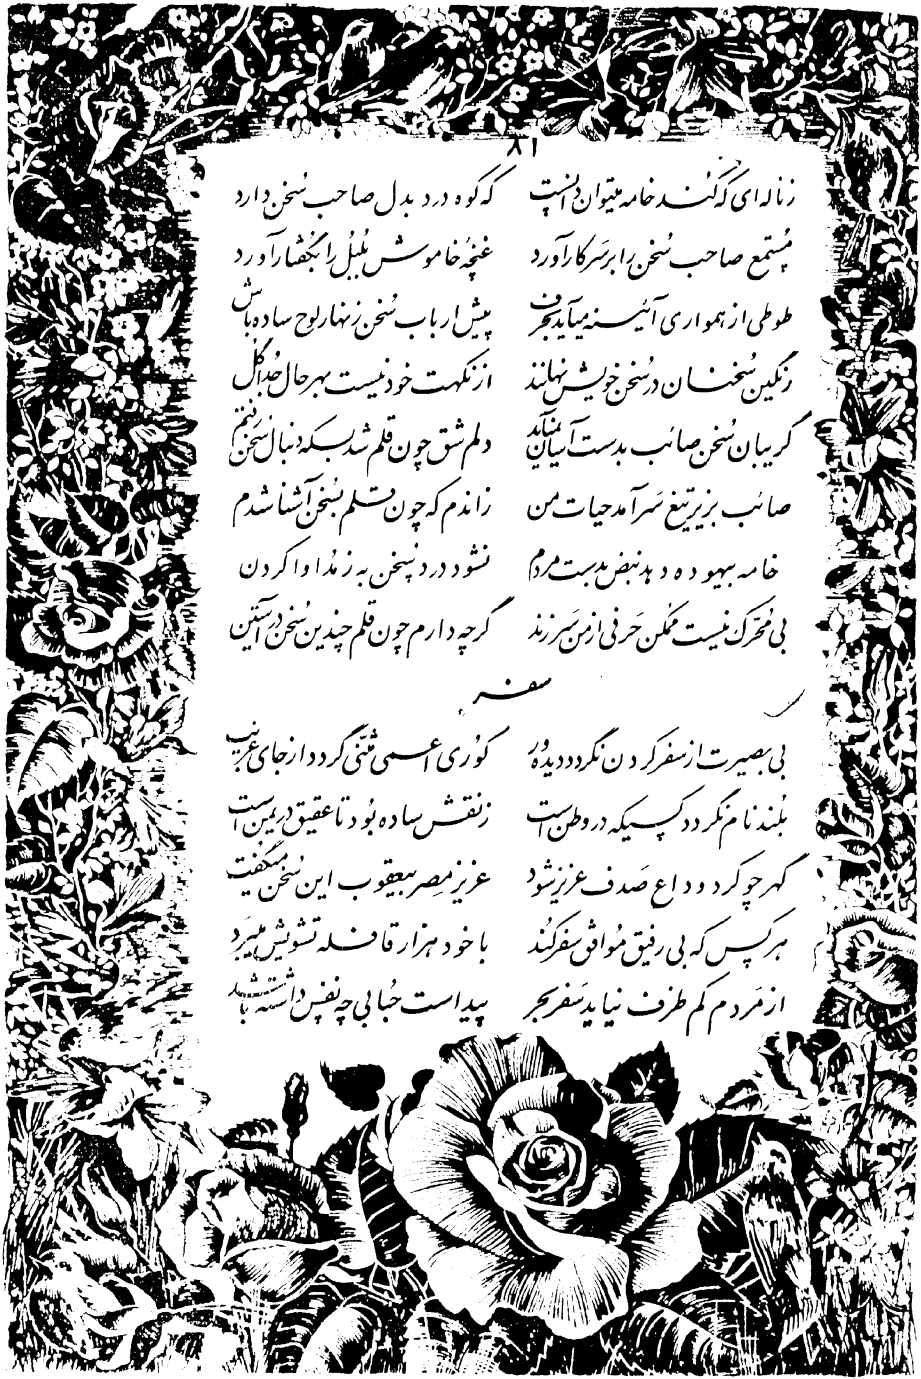 ۸۱
ز ناله‌ای که کند خامه میتوان دانست که کوه درد بدل صاحب سخن دارد
مستمع صاحب سخن را بر سر کار آورد غنچه خاموش بلبل را بگفتار آورد
طوطی از همواری آئینه میآید بحرف پیش ارباب سخن زنهار لوح ساده باش
رنگین سخنان در سخن خویش نهانند از نکهت خود نیست بهر حال جدا گل
گریبان سخن صائب بدست آسان نمیآید دلم شق چون قلم شد بسکه دنبال سخن رفتم
صائب بزیر تیغ سر آمد حیات من زاندم که چون قلم بسخن آشنا شدم
خامه بیهوده دهد نبض بدست مردم نشود درد سخن به ز مداوا کردن
بی محرک نیست ممکن حرفی از من سر زند گرچه دارم چون قلم چندین سخن در آستین
سفر
بی بصیرت از سفر کردن نگردد دیده ور کوری اعمی مثنی گردد از جای غریب
بلند نام نگردد کسیکه در وطن است ز نقش ساده بود تا عقیق در یمن است
گهر چو کرد وداع صدف عزیز شود عزیز مصر بیعقوب این سخن میگفت
هر کس که بی رفیق موافق سفر کند با خود هزار قافله تشویش میبرد
از مردم کم ظرف نیاید سفر بحر پیداست حبابی چه نفس داشته باشد